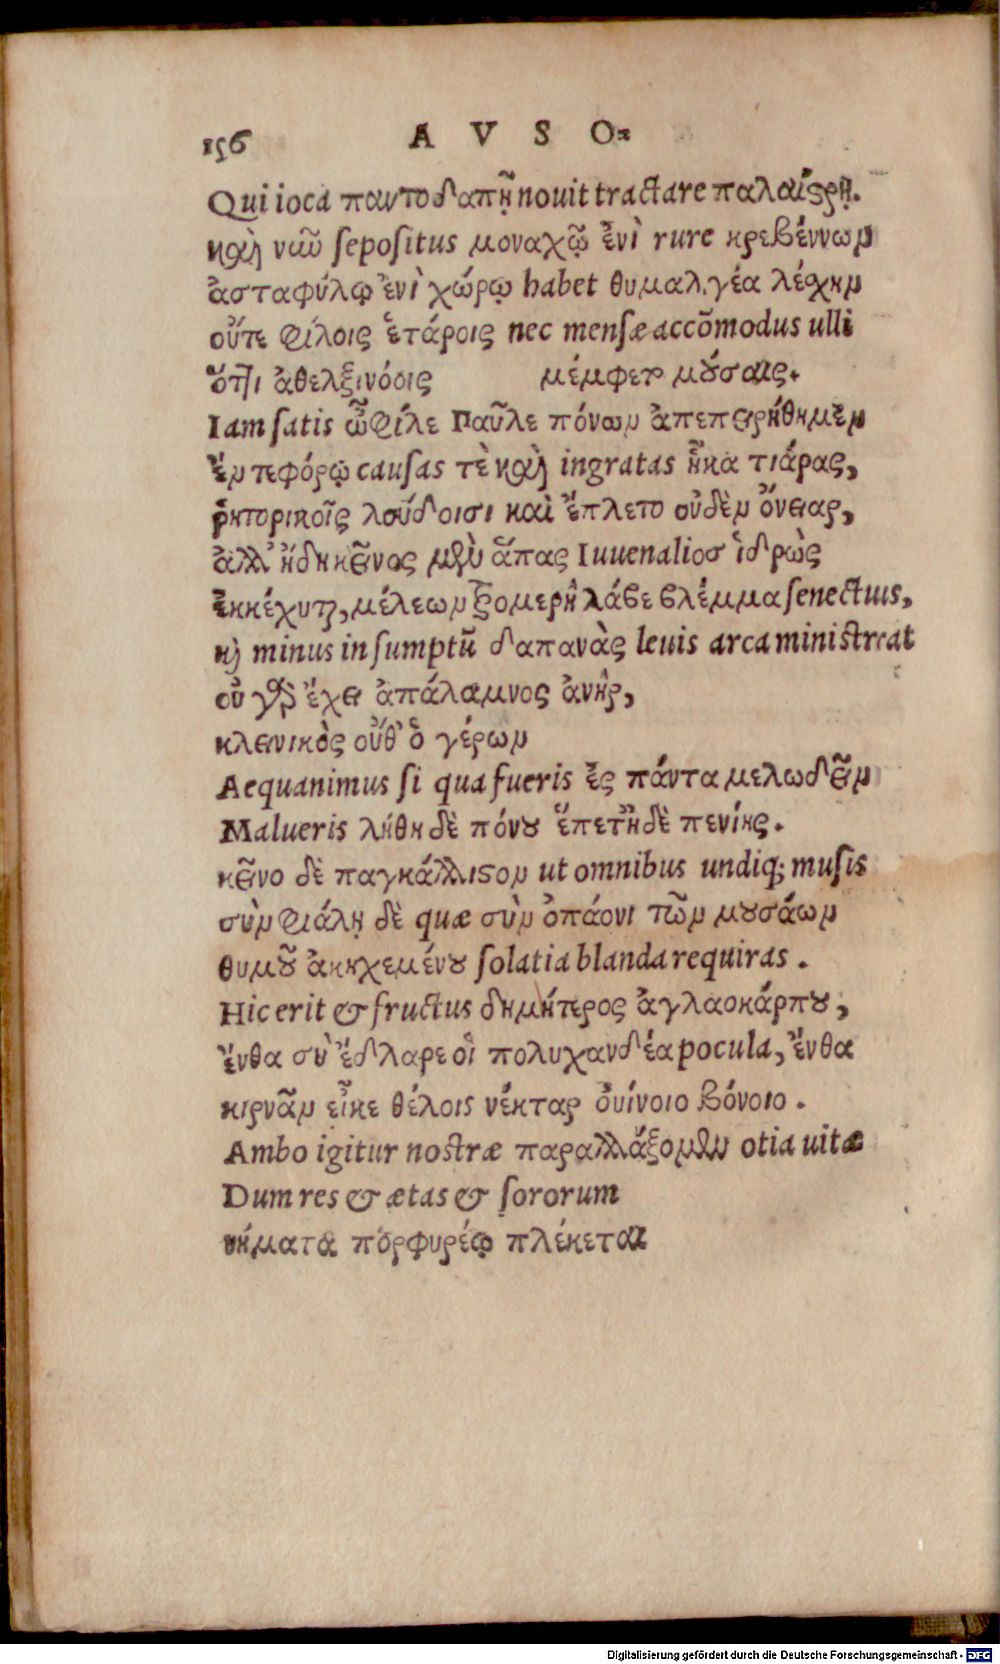 156 A V S O-
Qui ioca παντοδαπῇ nouit tractare παλαίςρῃ.
καὶ νῶ sepositus μοναχῷ ἐνὶ rure κρεβέννων
ἀσταφύλῳ ἐνὶ χώρῳ habet θυμαλγέα λέσχην
οὔτε φίλοις ἑτάροις nec mensæ accõmodus ulli
ὅτι ἀθελξινόοις μέμφετ μούσαις.
Iam satis ὦ φίλε Παῦλε πόνων ἀπεπειρήθημεν
ἔν τεφόρῳ causas τὲ καὶ ingratas ἧκα τιάρας,
ῥητορικοῖς λούδοισι καὶ ἔπλετο οὐδὲν ὄνειαρ,
ἀλλ' ἤδη κεῖνος μὲν ἅπας Iuuenalioσ ἱδρὼς
ἐκκέχυται, μέλεων ξομερὴ λάβε βλέμμα senectus,
καὶ minus in sumptũ δαπανὰς leuis arca ministreat
οὐ γὰρ ἔχει ἀπάλαμνος ἀνὴρ,
κλεινικὸς οὔθ' ὁ γέρων
Aequanimus si qua fueris ἐς πάντα μελωδεῖν
Malueris λήθη δὲ πόνου ἕπετ' ἠδὲ πενίης.
κεῖνο δὲ παγκάλλιςον ut omnibus undiq; musis
σὺν φιάλῃ δὲ quæ σὺν ὀπάονι τῶν μουσάων
θυμοῦ ἀκηχεμένου solatia blanda requiras.
Hic erit & fructus δημήτερος ἀγλαοκάρπου,
ἔνθα σὺ ἔδλαρε οἱ πολυχανδέα pocula, ἔνθα
κιρνᾶν εἶκε θέλοις νέκταρ ὀυίνοιο βόνοιο.
Ambo igitur nostræ παραλλάξομεν otia uitæ
Dum res & ætas & sororum
νήματα πορφυρέῳ πλέκεται
Digitalisierung gefördert durch die Deutsche Forschungsgemeinschaft - DFG